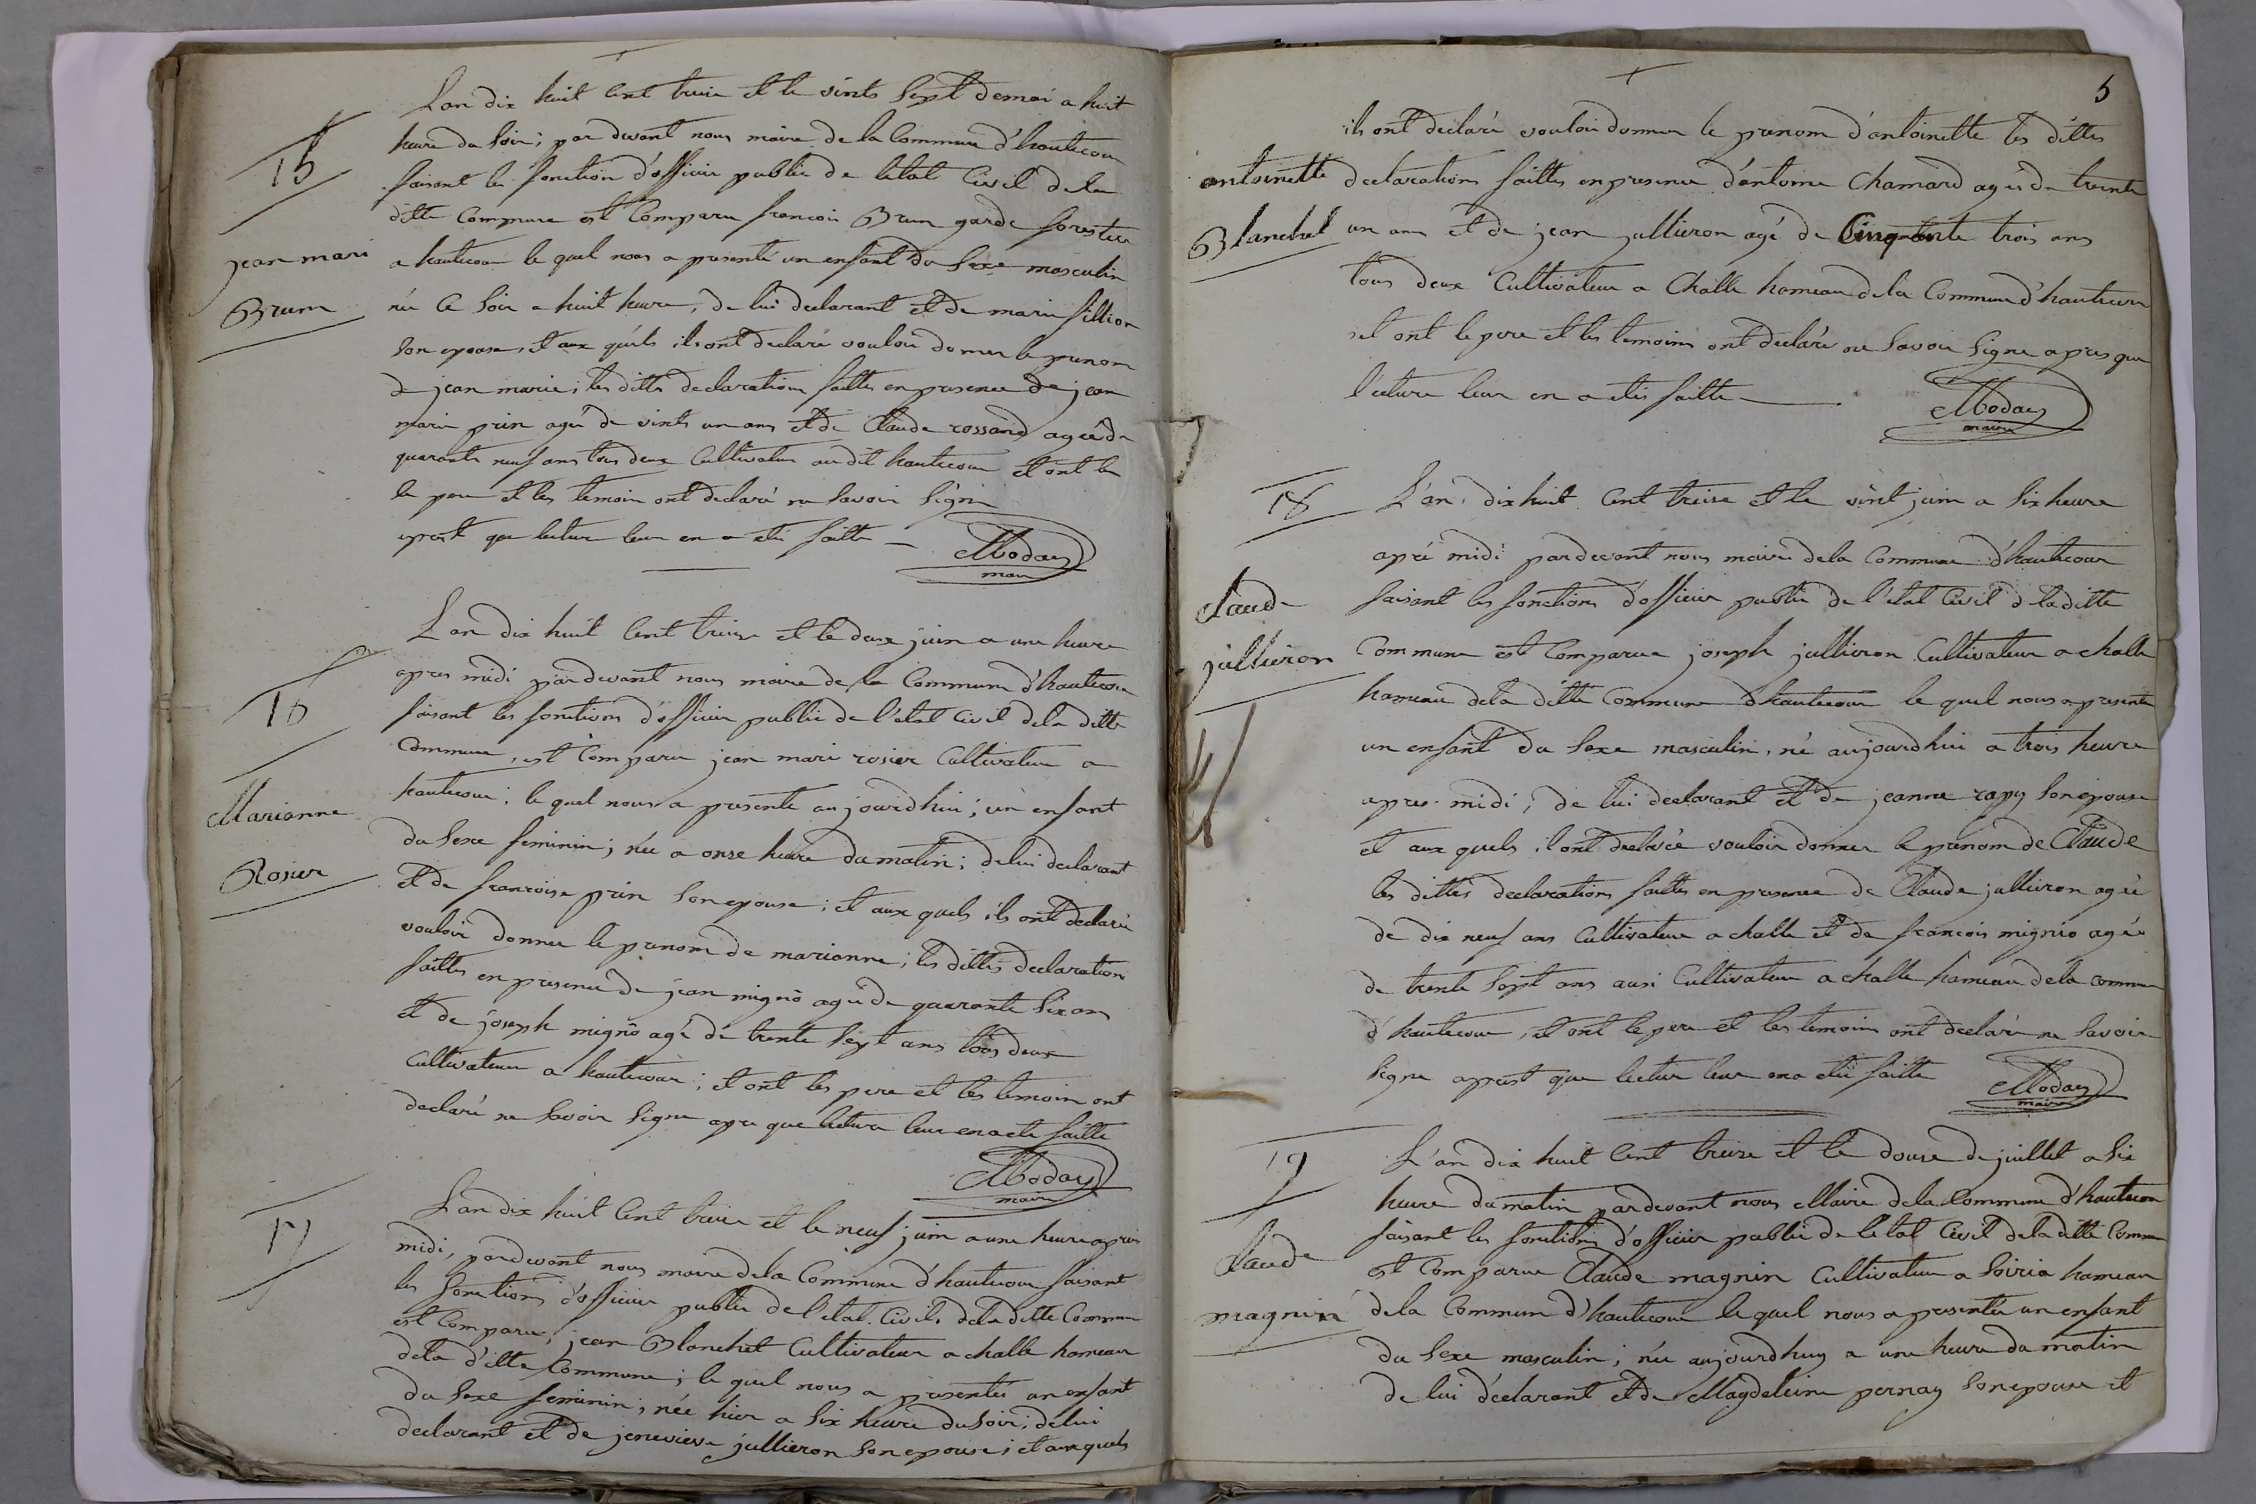 15
jean mari
Brun
L'an dix huit Cent treise et le vints Sept de mai a huit
heure du Soir; par devant nous maire de la Commune d'hautecour
faisant les fonction d'officier public de l'etat Civil de la
ditte Commune est Comparu francois Brun garde forestier
a hautecour le quel nous a presenté un enfant du Sexe masculin
née Ce Soir a huit heure, de lui declarant et de marie fillion
Son epouse, et aux quels ils ont declaré vouloir donner le prenom
de jean marie; les dittes declarations faittes en presence de jean
marie prin agée de vints un ans et de Claude rossand agée de
quarante neuf ans tous deux Cultivateur au dit hautecour et ont les
le pere et les temoin ont declaré ne Savoir Signer
aprest que lecture leur en a eté faitte
Moday
maire
16
Marianne
Rosier
L'an dix huit Cent treise et le deux juin a une heure
apres midi par devant nous maire de la Commune d'hautecour
faisant les fonctions d'officier public de l'etat Civil de la ditte
Commune, est Comparu jean marie rosier Cultivateur a
hautecour; le quel nous a presenté aujourdhui; un enfant
du Sexe feminin; née a onse heure du matin; de lui declarant
et de francoise prin Son epouse; et aux quels ils ont declaré
vouloir donner le prenom de marianne; les dittes declaration
faittes en presence de jean mignio agée de quarante Six ans
et de joseph mignio agé de trente Sept ans tous deux
Cultivateur a hautecour; et ont les pere et les temoin ont
declaré ne Savoir Signer apre que lecture leur en a eté faitte
Moday
maire
17
L'an dix huit Cent treise et le neuf juin a une heure apres
midi, par devant nous maire de la Commune d'hautecour faisant
les fonctions d'officier public de l'etat Civil, de la ditte Commune
est Comparu; jean Blanchet Cultivateur a challe hameau
de la ditte Commune; le quel nous a presentée un enfant
du Sexe feminin; née hier a Six heure du Soir; de lui
declarant et de jenevieve jullieron Son epouse; et aux quels
5
antoinette
Blanchet
ils ont declaré vouloir donner le prenom d'antoinette les dittes
declarations faittes en presence d'antoine Chamard agée de trente
un ans et de jean jullieron agé de Cinquante trois ans
tous deux Cultivateur a Challe hameau de la Commune d'hautecour
et ont le pere et les temoins ont declaré ne Savoir Signer apres que
lecture leur en a etée faitte
Moday
maire
18
Claude
jullieron
L'an dix huit Cent treise et le vint juin a Six heure
apré midi par devant nous maire de la Commune d'hautecour
faisant les fonctions d'officier public de l'etat Civil de la ditte
Commune est Comparue joseph jullieron Cultivateur a challe
hameau de la ditte Commune d'hautecour le quel nous a presenté
un enfant du Sexe masculin, né aujourdhui a trois heure
apres midi; de lui declarant et de jeanne rapy Son epouse
et aux quels il ont declarée vouloir donner le prenom de Claude
les dittes declarations faittes en presence de Claude jullieron agée
de dix neuf ans Cultivateur a challe et de francois mignio agée
de trente Sept ans ausi Cultivateur a challe hameau de la commune
d'hautecour, et ont le pere et les temoin ont declaré ne Savoir
Signer aprest que lecture leur en a etée faitte
Moday
maire
19
Claude
magnin
L'an dix huit Cent treize et le douze de juillet a Six
heure du matin par devant nous Maire de la Commune d'hautecour
faisant les fonctions d'officier public de l'etat Civil de la ditte Commune
est Comparue Claude magnin Cultivateur a Soiria hameau
de la Commune d'hautecour le quel nous a presentée un enfant
du Sexe masculin; née aujourdhuy a une heure du matin
de lui declarant et de Magdeleine pernay Son epouse et